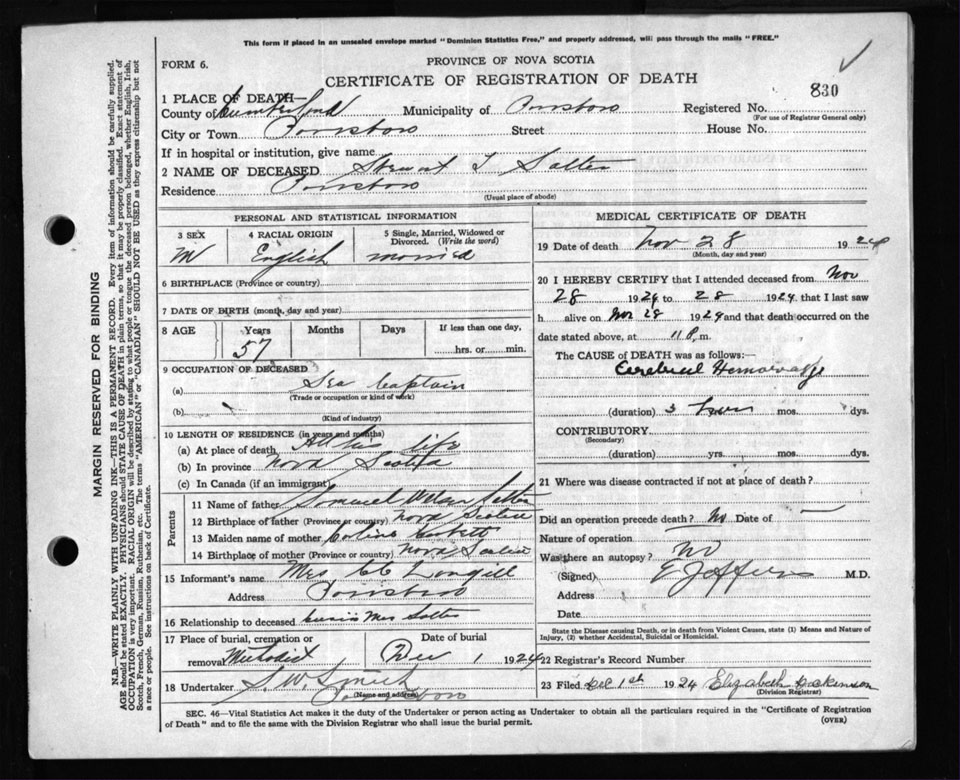 This form if placed in an unsealed envelope marked "Dominion Statistics Free," and properly addressed, will pass through the mails "FREE."
FORM 6.
PROVINCE OF NOVA SCOTIA
CERTIFICATE OF REGISTRATION OF DEATH
830
1 PLACE OF DEATH
County of Cumberland Municipality of Parrsboro Registered No.
(For use of Registrar General only)
City or Town Parrsboro Street House No.
If in hospital or institution, give name
2 NAME OF DECEASED Stewart T Salter
Residence Parrsboro
(Usual place of abode)
PERSONAL AND STATISTICAL INFORMATION
3 SEX 4 RACIAL ORIGIN 5 Single, Married, Widowed or Divorced. (Write the word)
M English married
6 BIRTHPLACE (Province or country)
7 DATE OF BIRTH (month, day and year)
8 AGE Years Months Days If less than one day,
57 hrs. or min.
9 OCCUPATION OF DECEASED
(a) Sea Captain
(Trade or occupation or kind of work)
(b)
(Kind of industry)
10 LENGTH OF RESIDENCE (in years and months)
(a) At place of death All his life
(b) In province Nova Scotia
(c) In Canada (if an immigrant)
Parents
11 Name of father Samuel Salter
12 Birthplace of father (Province or country) Nova Scotia
13 Maiden name of mother
14 Birthplace of mother (Province or country) Nova Scotia
15 Informant's name Mrs
Address Parrsboro
16 Relationship to deceased Mrs Salter
17 Place of burial, cremation or removal Methodist Date of burial Dec 1 1924
18 Undertaker S. W. Smith
(Name and address) Parrsboro
MEDICAL CERTIFICATE OF DEATH
19 Date of death Nov 28 1924
(Month, day and year)
20 I HEREBY CERTIFY that I attended deceased from Nov
28 1924 to 28 1924 that I last saw
h alive on Nov 28 1924 and that death occurred on the
date stated above, at 11 p. m.
The CAUSE of DEATH was as follows:—
Cerebral Hemorrage
(duration) 3 hours mos. dys.
CONTRIBUTORY
(Secondary)
(duration) yrs. mos. dys.
21 Where was disease contracted if not at place of death?
Did an operation precede death? No Date of —
Nature of operation
Was there an autopsy? No
(Signed) M.D.
Address
Date
State the Disease causing Death, or in death from Violent Causes, state (1) Means and Nature of Injury, (2) whether Accidental, Suicidal or Homicidal.
22 Registrar's Record Number
23 Filed Dec 1st 1924 Elizabeth Dickinson
(Division Registrar)
SEC. 46—Vital Statistics Act makes it the duty of the Undertaker or person acting as Undertaker to obtain all the particulars required in the "Certificate of Registration
of Death" and to file the same with the Division Registrar who shall issue the burial permit.
(OVER)
MARGIN RESERVED FOR BINDING
N.B.—WRITE PLAINLY WITH UNFADING INK—THIS IS A PERMANENT RECORD. Every item of information should be carefully supplied.
AGE should be stated EXACTLY. PHYSICIANS should STATE CAUSE OF DEATH in plain terms, so that it may be properly classified. Exact statement of
OCCUPATION is very important. RACIAL ORIGIN will be described by stating to what people or tongue the deceased person belonged, whether English, Irish,
Scotch, French, German, Russian, Ruthenian, etc. The terms "AMERICAN" or "CANADIAN" SHOULD NOT BE USED as they express citizenship but not
a race or people. See instructions on back of Certificate.